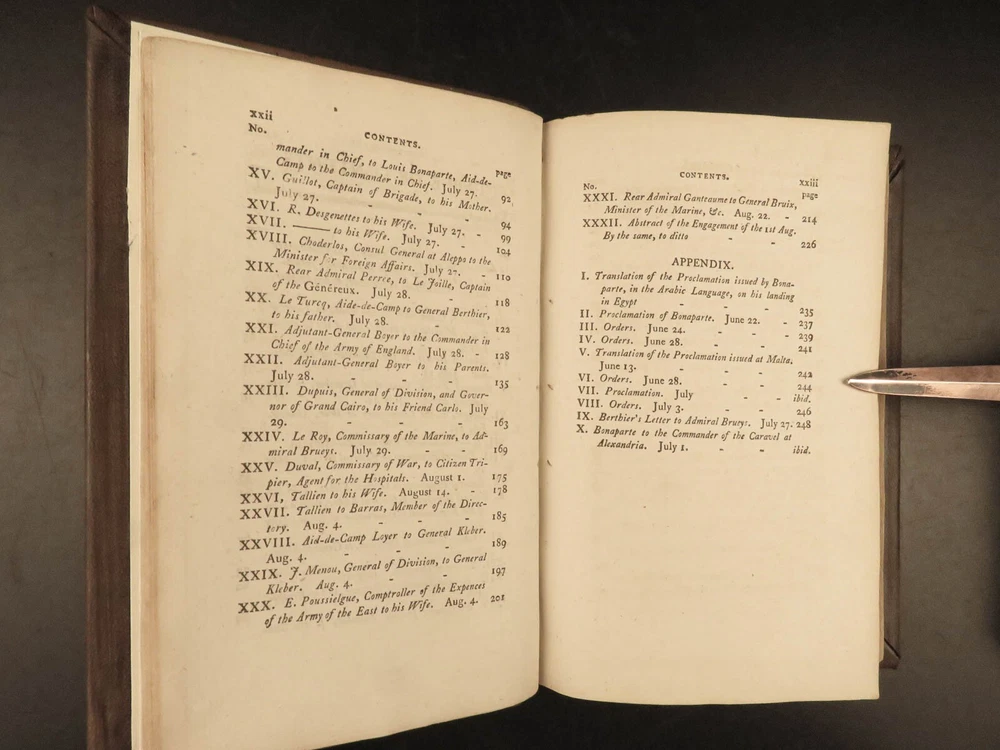 xxii
CONTENTS.
No.
page
mander in Chief, to Louis Bonaparte, Aid-de-
Camp to the Commander in Chief. July 27. 92
XV. Guillot, Captain of Brigade, to his Mother.
July 27. - - - 94
XVI. R. Desgenettes to his Wife. July 27. - 99
XVII. —— to his Wife. July 27. - 104
XVIII. Choderlos, Consul General at Aleppo to the
Minister for Foreign Affairs. July 27. - 110
XIX. Rear Admiral Perree, to Le Joille, Captain
of the Généreux. July 28. - 118
XX. Le Turcq, Aide-de-Camp to General Berthier,
to his father. July 28. - 122
XXI. Adjutant-General Boyer to the Commander in
Chief of the Army of England. July 28. - 128
XXII. Adjutant-General Boyer to his Parents.
July 28. - - - 135
XXIII. Dupuis, General of Division, and Gover-
nor of Grand Cairo, to his Friend Carlo. July
29. - - - - 163
XXIV. Le Roy, Commissary of the Marine, to Ad-
miral Brueys. July 29. - - 169
XXV. Duval, Commissary of War, to Citizen Tri-
pier, Agent for the Hospitals. August 1. 175
XXVI, Tallien to his Wife. August 14. - 178
XXVII. Tallien to Barras, Member of the Direc-
tory. Aug. 4. - - - 185
XXVIII. Aid-de-Camp Loyer to General Kleber.
Aug. 4. - - - 189
XXIX. J. Menou, General of Division, to General
Kleber. Aug. 4. - - 197
XXX. E. Poussielgue, Comptroller of the Expences
of the Army of the East to his Wife. Aug. 4. 201
CONTENTS.
xxiii
No.
page
XXXI. Rear Admiral Ganteaume to General Bruix,
Minister of the Marine, &c. Aug. 22. - 214
XXXII. Abstract of the Engagement of the 1st Aug.
By the same, to ditto - - 226
APPENDIX.
I. Translation of the Proclamation issued by Bona-
parte, in the Arabic Language, on his landing
in Egypt - - - 235
II. Proclamation of Bonaparte. June 22. - 237
III. Orders. June 24. - - 239
IV. Orders. June 28. - - 241
V. Translation of the Proclamation issued at Malta.
June 13. - - - 242
VI. Orders. June 28. - - 244
VII. Proclamation. July - - ibid.
VIII. Orders. July 3. - - 246
IX. Berthier's Letter to Admiral Brueys. July 27. 248
X. Bonaparte to the Commander of the Caravel at
Alexandria. July 1. - - ibid.